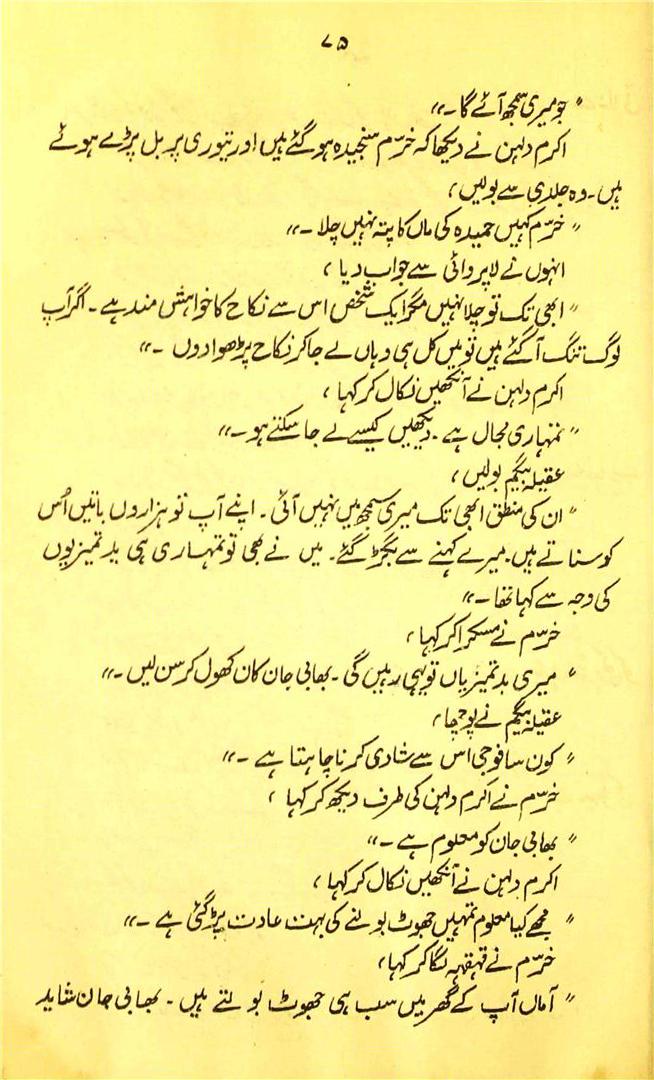 ۷۵
" جو میری سمجھ آئے گا۔"
اکرم دلہن نے دیکھا کہ خرّم سنجیدہ ہو گئے ہیں اور تیوری پر بل پڑے ہوئے
ہیں۔ وہ جلدی سے بولیں،
" خرّم کہیں حمیدہ کی ماں کا پتہ نہیں چلا۔"
انہوں نے لاپروائی سے جواب دیا،
" ابھی تک تو چلا نہیں مگر ایک شخص اس سے نکاح کا خواہش مند ہے۔ اگر آپ
لوگ تنگ آ گئے ہیں تو میں کل ہی وہاں لے جا کر نکاح پڑھوا دوں۔"
اکرم دلہن نے آنکھیں نکال کر کہا،
" تمہاری مجال ہے۔ دیکھیں کیسے لے جا سکتے ہو۔"
عقیلہ بیگم بولیں،
" ان کی منطق ابھی تک میری سمجھ میں نہیں آئی۔ اپنے آپ تو ہزاروں باتیں اُس
کو سناتے ہیں۔ میرے کہنے سے بگڑ گئے۔ میں نے بھی تو تمہاری ہی بدتمیزیوں
کی وجہ سے کہا تھا۔"
خرّم نے مسکرا کر کہا،
" میری بدتمیزیاں تو یہی رہیں گی۔ بھابی جان کان کھول کر سن لیں۔"
عقیلہ بیگم نے پوچھا،
" کون سا فوجی اس سے شادی کرنا چاہتا ہے۔"
خرّم نے اکرم دلہن کی طرف دیکھ کر کہا،
" بھابی جان کو معلوم ہے۔"
اکرم دلہن نے آنکھیں نکال کر کہا،
" مجھے کیا معلوم تمہیں جھوٹ بولنے کی بہت عادت پڑ گئی ہے۔"
خرّم نے قہقہہ لگا کر کہا،
" اماں آپ کے گھر میں سب ہی جھوٹ بولتے ہیں۔ بھابی جان شاید